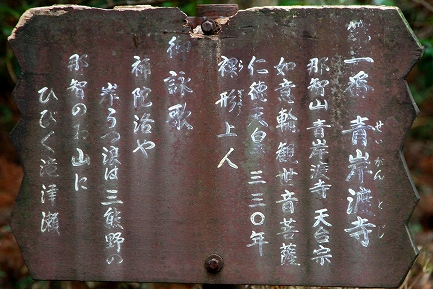 第一番 青岸渡寺
せいがんとじ
那智山青岸渡寺 天台宗
如意輪観世音菩薩
仁徳天皇三三〇年
裸形上人
御詠歌
補陀洛や
岸うつ浪は三熊野の
那智のお山に
ひびく滝津瀬